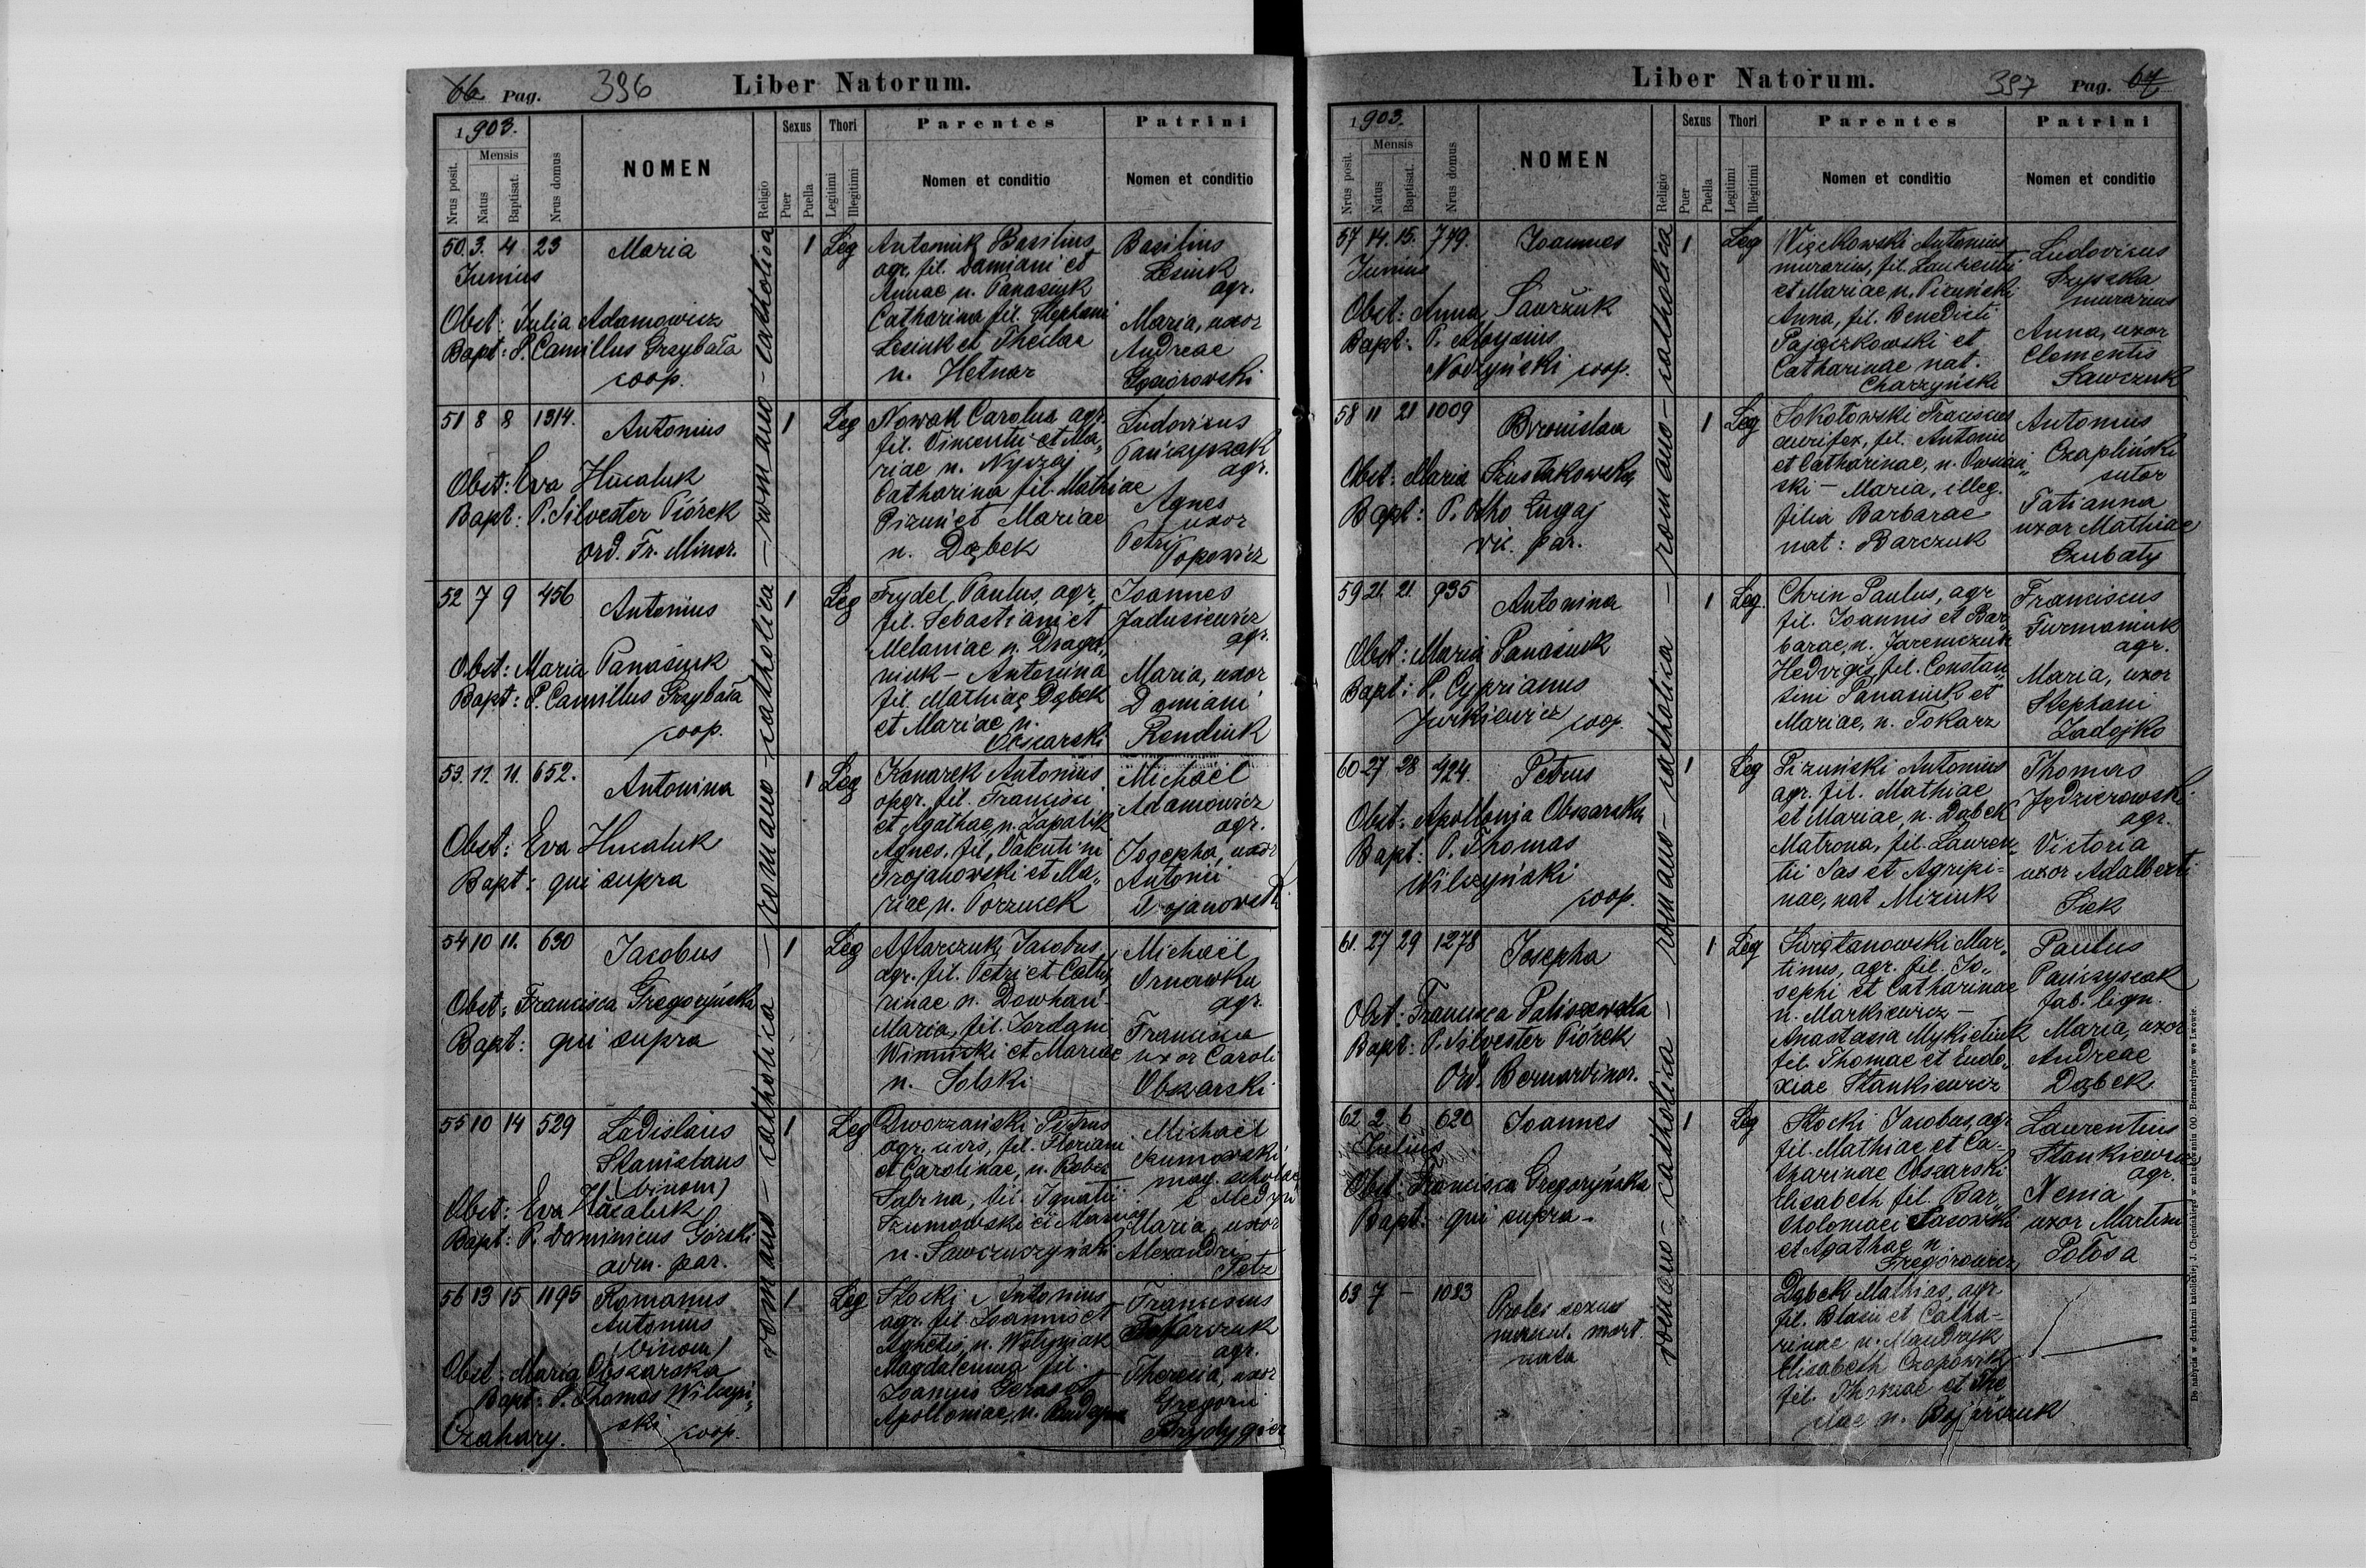 66 Pag. 396 Liber Natorum.
1903.
Nrus posit.
Mensis
Natus
Baptisat.
Nrus domus
NOMEN
Religio
Sexus
Puer
Puella
Thori
Legitimi
Illegitimi
Parentes
Nomen et conditio
Patrini
Nomen et conditio
romano-catholica – romano-catholica – romano-catholica – romano-catholica
50. 3. 4 23 Maria 1 Leg
Junius
Obst: Julia Adamowicz
Bapt: P. Camillus Grzybała
coop.
Antoniuk Basilius
agr. fil. Damiani et
Annae n. Panasiuk
Catharina fil. Stephani
Lesiuk et Theclae
n. Hetnar
Basilius
Lesiuk
agr.
Maria, uxor
Andreae
51 8 8 1314. Antonius 1 Leg
Obst: Eva Hucaluk
Bapt: P. Silvester Piórek
ord. Fr. Minor.
Nowak Carolus agr.
fil. Vincentii et Ma„
riae n. Nyczaj
Catharina fil. Mathiae
Pizun et Mariae
n. Dąbek
Ludovicus
Pańczyszak
agr.
Agnes
uxor
Petri
Popowicz
52 7 9 456 Antonius 1 Leg
Obst: Maria Panasiuk
Bapt: P. Camillus Grzybała
coop.
Frydel Paulus, agr.
fil. Sebastiani et
Melaniae n. Draga„
niuk – Antonina
fil. Mathiae Dąbek
et Mariae n.
Obszarski
Joannes
Jadusiewicz
agr.
Maria, uxor
Damiani
Rendiuk
53. 11. 11. 652. Antonina 1 Leg
Obst: Eva Hucaluk
Bapt: qui supra
Konarek Antonius
agr. fil. Francisci
et Agathae, n. Zapalik
Agnes, fil. Valentini
Trojanowski et Ma„
riae n. Porzucek
Michaël
Adamowicz
agr.
Josepha, uxor
Antonii
Trojanowski
54 10 11. 630 Jacobus 1 Leg
Obst: Francisca Gregoryńska
Bapt: qui supra
Jacobus
agr. fil. Petri et Catha„
rinae n. Dowhań–
Maria, fil. Jordani
Winnicki et Mariae
n. Solski
Michaël
Ornawka
agr.
Francisca
uxor Caroli
Obszarski
55 10 14 529 Ladislaus 1 Leg
Stanislaus
(binom)
Obst: Eva Hucaluk
Bapt: P. Dominicus Górski
adm. par.
Dworzański Petrus
agr. civis, fil. Floriani
et Carolinae, n. Rober
Sabina, fil. Ignatii
Szumowski et Mariae
n. Sawczuczyński
Michaël
Szumowski
mag. scholae
Maria, uxor
Alexandri
Petz
56 13 15 1195 Romanus 1 Leg
Antonius
(binom)
Obst: Maria Obszarska
Bapt: P. Thomas Wilczyń„
ski coop.
Czahary.
Słocki Antonius
agr. fil. Joannis et
Agnetis, n. Wołyniak
Magdalenna fil.
Joannis
Apolloniae, n.
Franciscus
agr.
Theresia, uxor
Gregorii
Frydygier
Liber Natorum. 397 Pag. 67
1903.
Nrus posit.
Mensis
Natus
Baptisat.
Nrus domus
NOMEN
Religio
Sexus
Puer
Puella
Thori
Legitimi
Illegitimi
Parentes
Nomen et conditio
Patrini
Nomen et conditio
romano-catholica – romano-catholica – romano-catholica – romano-catholica
57 14. 15. 779. Joannes 1 Leg
Junius
Obst: Anna Sawczuk
Bapt: P. Aloysius
Nodzyński coop.
Więckowski Antonius
murarius, fil. Laurentii
et Mariae n. Pizuński
Anna, fil. Benedicti
Pajączkowski et
Catharinae nat.
Charzyński
Ludovicus
Gryszka
murarius
Anna, uxor
Clementis
Sawczuk
58 11 21 1009 Bronislava 1 Leg
Obst: Maria Szustakowska
Bapt: P. Otho Ługaj
vic. par.
Sokołowski Franciscus
aurifex, fil. Antonii
et Catharinae, n.
ski – Maria, illeg.
filia Barbarae
nat: Barczuk
Antonius
Czapliński
sutor
Tatianna
uxor Mathiae
Czubaty
59 21. 21. 935 Antonina 1 Leg.
Obst: Maria Panasiuk
Bapt: P. Cyprianus
Jurkiewicz coop.
Chrin Paulus, agr
fil. Joannis et Bar„
barae, n. Jaremczuk
Hedvigis, fil. Constan„
tini Panasiuk et
Mariae, n. Tokarz
Franciscus
Furmaniuk
agr.
Maria, uxor
Stephani
Zadojko
60 27 28 924. Petrus 1 Leg
Obst: Apollonia Obszarska
Bapt: P. Thomas
Wilczyński
coop.
Pizuński Antonius
agr. fil. Mathiae
et Mariae, n. Dąbek
Matrona, fil. Lauren„
tii Sas et Agripi=
nae, nat Miziuk
Thomas
Jędzierowski
agr.
Victoria
uxor Adalberti
Siek
61. 27 29 1278 Josepha 1 Leg
Obst: Francisca Paliszewska
Bapt: P. Silvester Piórek
Ord. Bernardinor.
Mar„
tinus, agr. fil. Jo„
sephi et Catharinae
n. Markiewicz –
Anastasia Mykietiuk
fil. Thomae et Eudo„
xiae Stankiewicz
Paulus
Pańczyszak
fab. lign.
Maria, uxor
Andreae
Dąbek
62 2 6 620 Joannes 1 Leg
Julius
Obst: Francisca Gregoryńska
Bapt: qui supra –
Słocki Jacobus, agr
fil. Mathiae et Ca–
tharinae Obszarski
Elisabeth fil. Bar„
tholomaei
et Agathae n.
Gregorowicz
Laurentius
Stankiewicz
agr.
Nenia
uxor Martini
Połosa
63 7 – 1083 Proles sexus
mascul. mort.
nata
Dąbek Mathias, agr.
fil. Blasii et Catha–
rinae n. Mandryk
Elisabeth
fil. Thomae et The„
clae n. Bojarczuk
De nabycia w drukarni katolickiej J. Chęcińskiego w zabudowaniu OO. Bernardynów we Lwowie.